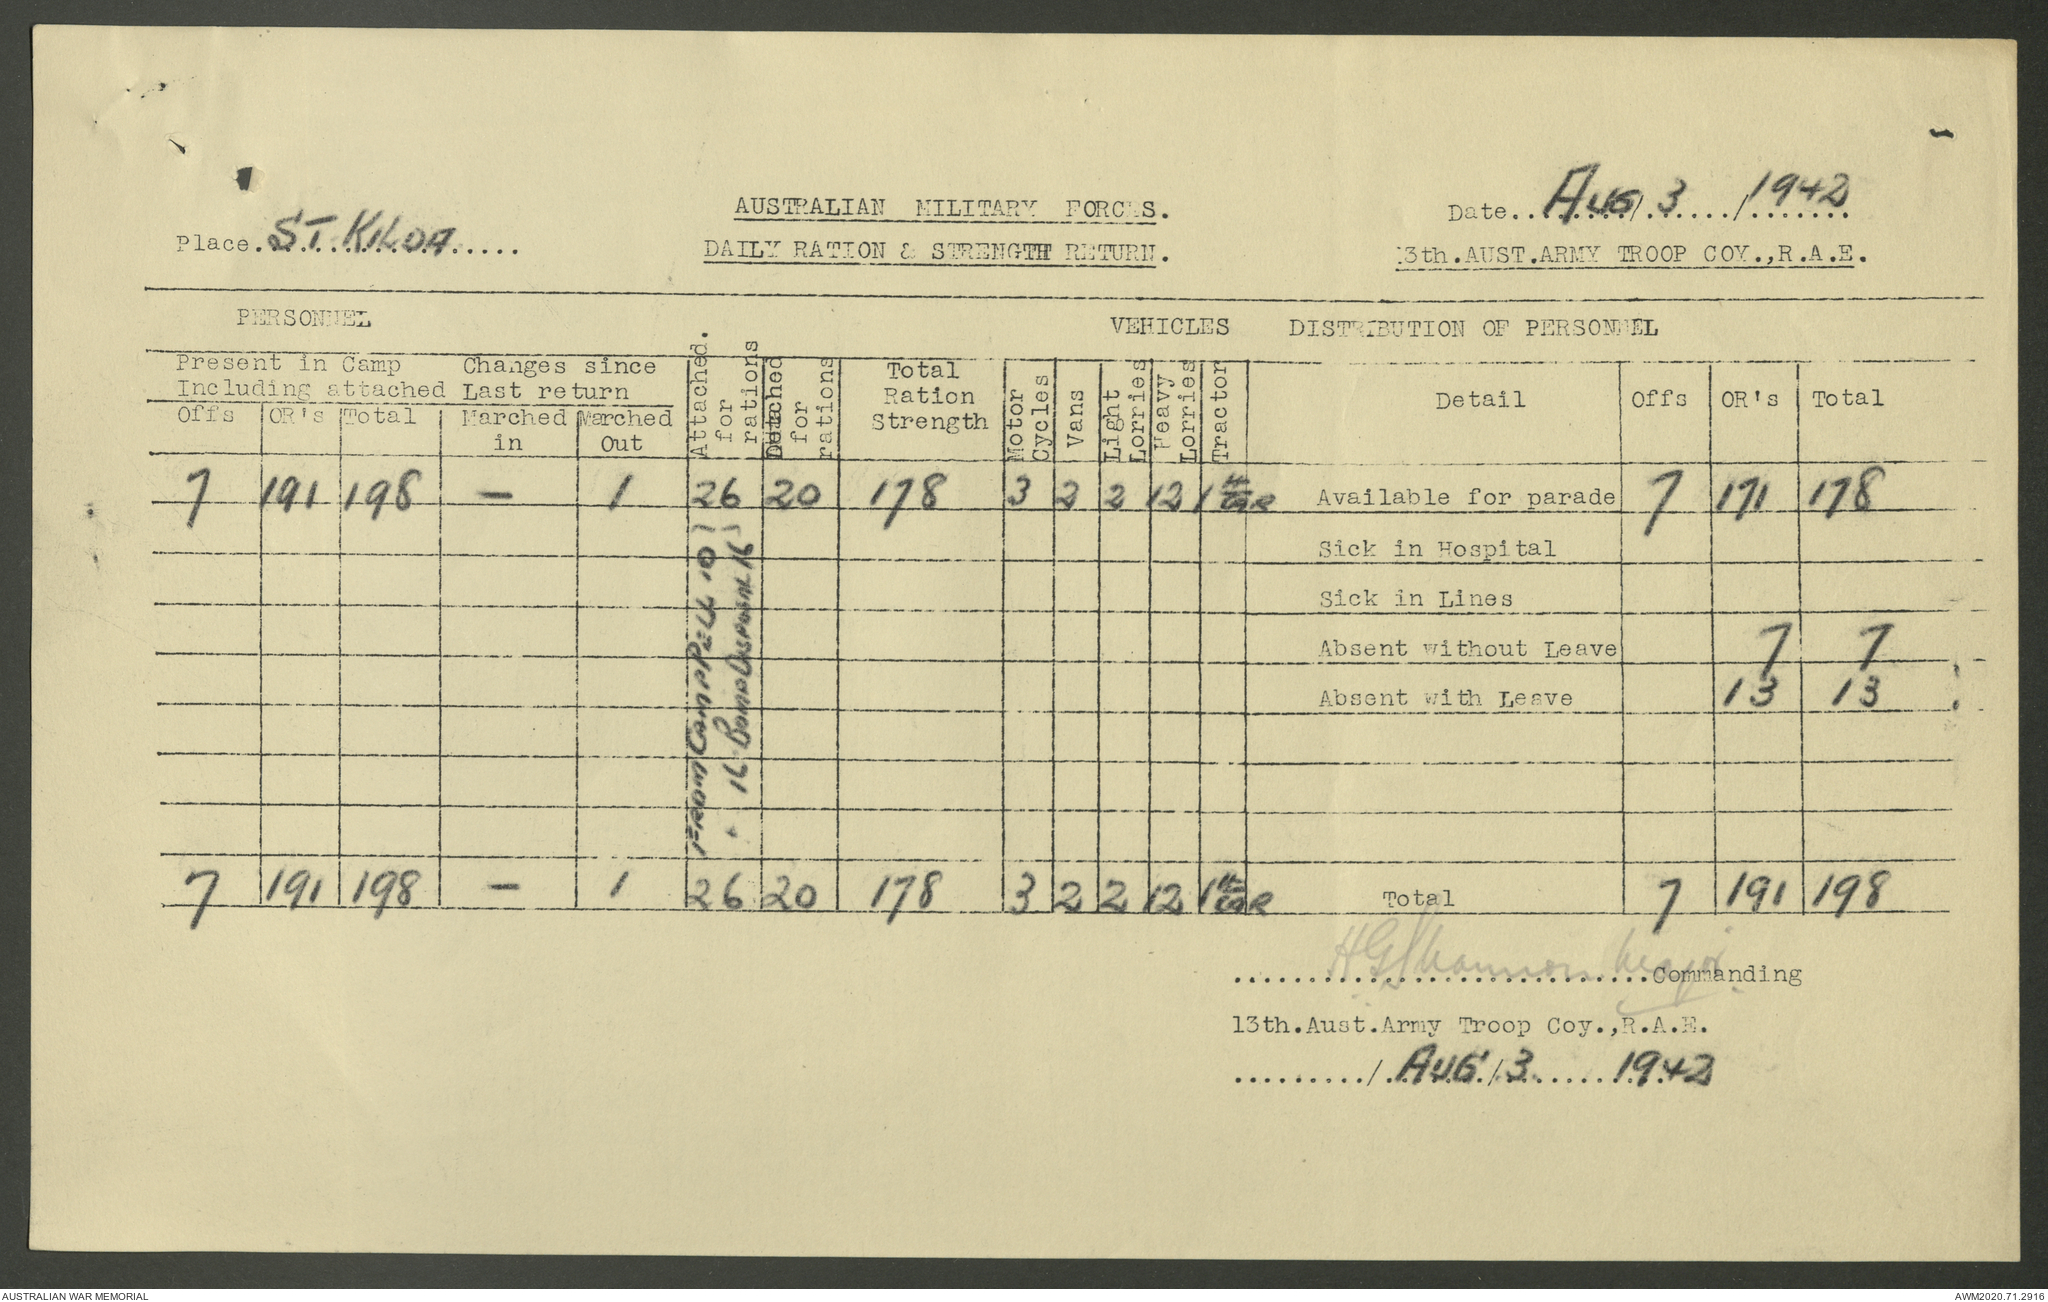 AUSTRALIAN MILITARY FORCES.
DAILY RATION & STRENGTH RETURN.
Place. ST. KILDA
Date.. AUG / 3 / 1942
13th.AUST.ARMY TROOP COY.,R.A.E.
PERSONNEL VEHICLES DISTRIBUTION OF PERSONNEL
Present in Camp Including attached
Changes since Last return
Offs OR's Total Marched in Marched Out Attached. for rations Detached for rations Total Ration Strength Motor Cycles Vans Light Lorries Heavy Lorries Tractor Detail Offs OR's Total
7 191 198 - 1 26 20 178 3 2 2 12 1 CAR Available for parade 7 171 178
Sick in Hospital
Sick in Lines
Absent without Leave 7 7
Absent with Leave 13 13
10
16 BOMB DISPOSAL 16
7 191 198 - 1 26 20 178 3 2 2 12 1 CAR Total 7 191 198
HG Shannon Major Commanding
13th.Aust.Army Troop Coy.,R.A.E.
/ AUG / 3 1942
AUSTRALIAN WAR MEMORIAL
AWM2020.71.2916